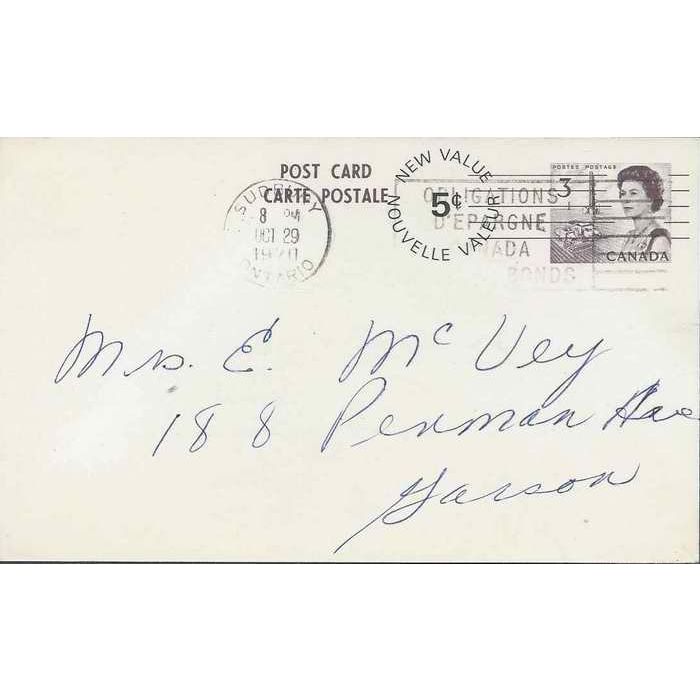 POST CARD
CARTE POSTALE
SUDBURY
8 PM
OCT 29
1970
ONTARIO
NEW VALUE
5¢
NOUVELLE VALEUR
OBLIGATIONS
D'EPARGNE
CANADA
BONDS
POSTES POSTAGE
3
CANADA
Mrs. E. McVey
188 Penman Ave
Garson